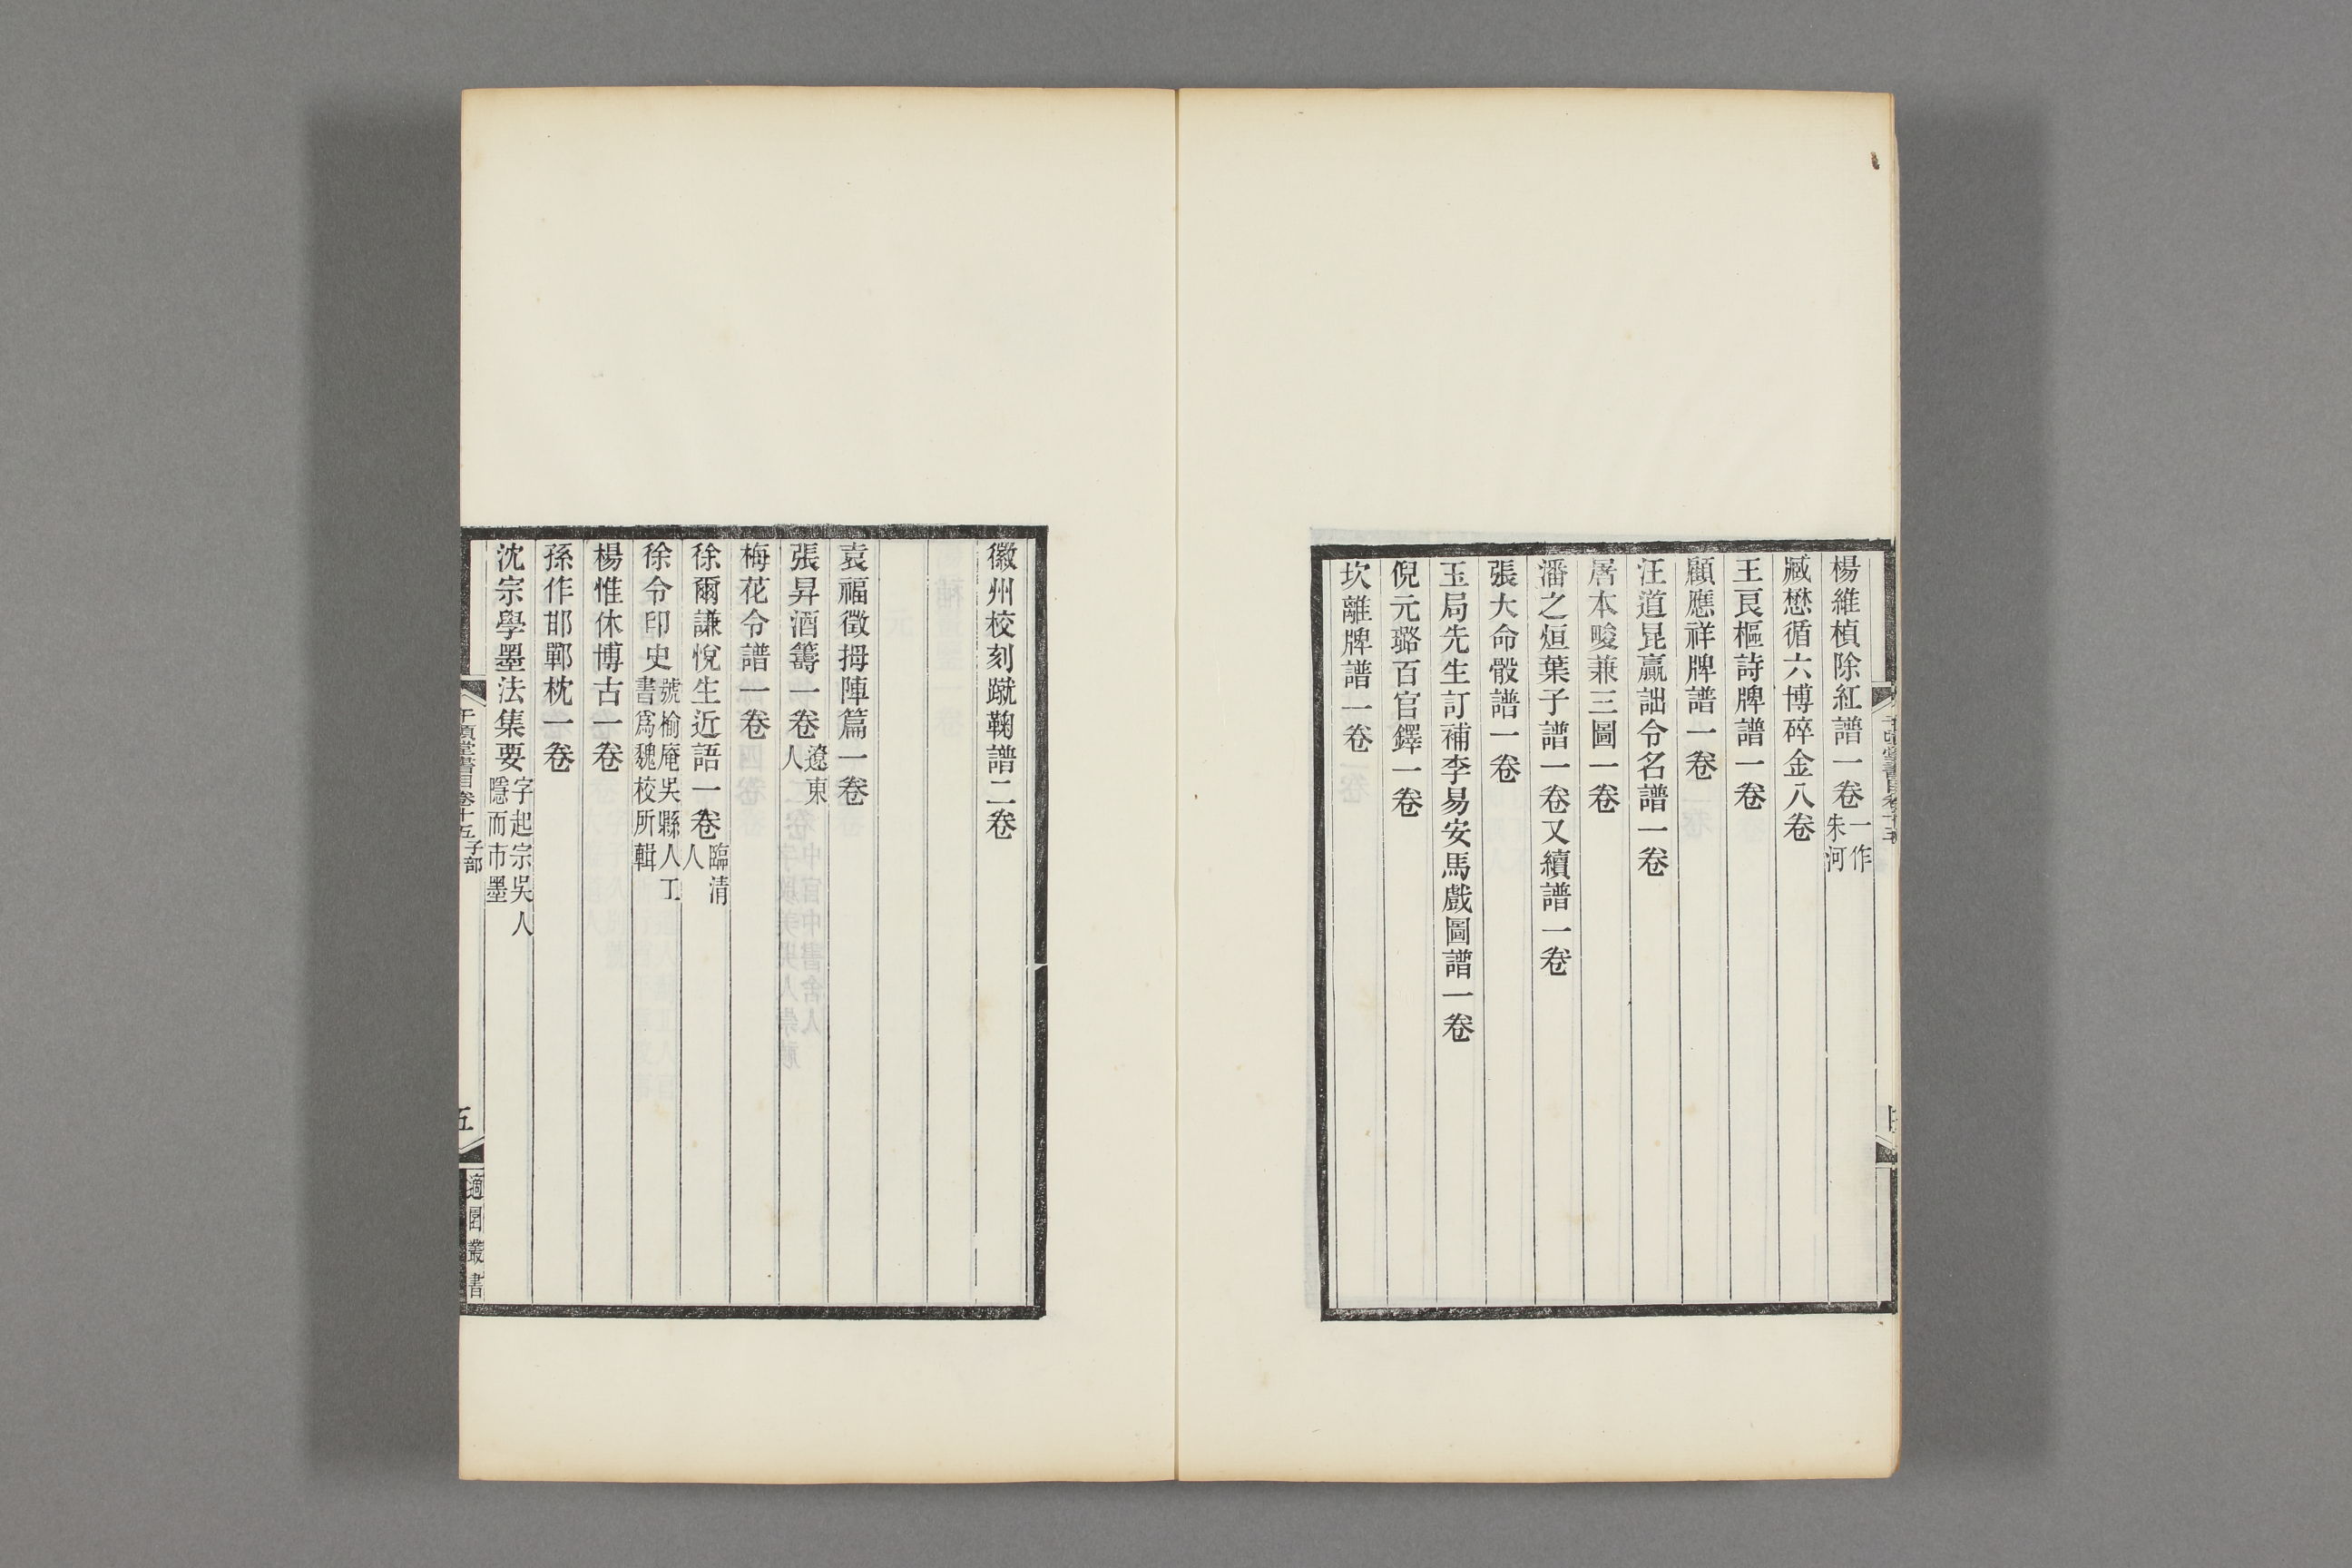 楊維楨除紅譜一卷一作朱河
臧懋循六博碎金八卷
王良樞詩牌譜一卷
顧應祥牌譜一卷
汪道昆贏詘令名譜一卷
屠本畯兼三圖一卷
潘之烜葉子譜一卷又續譜一卷
張大命骰譜一卷
玉局先生訂補李易安馬戲圖譜一卷
倪元璐百官鐸一卷
坎離牌譜一卷
徽州校刻蹴鞠譜二卷
袁福徵拇陣篇一卷
張昇酒籌一卷遼東人
梅花令譜一卷
徐爾謙悅生近語一卷臨清人
徐令印史號榆庵吳縣人工書爲魏校所輯
楊惟休博古一卷
孫作邯鄲枕一卷
沈宗學墨法集要字起宗吳人隱而市墨
千頃堂書目卷十五 子部
五
適園叢書